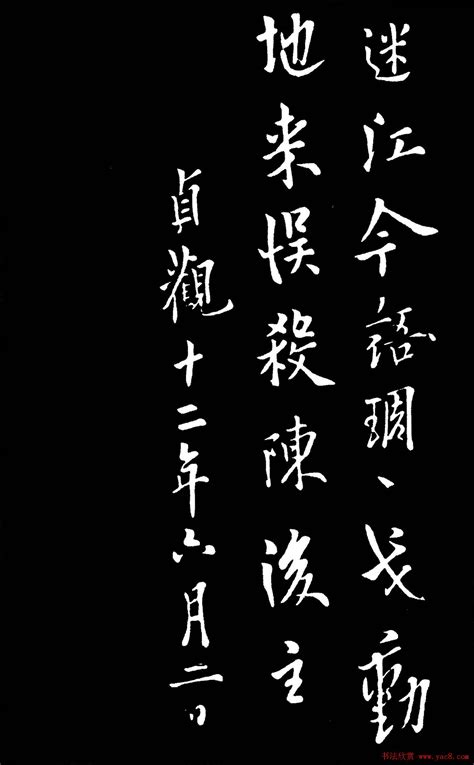 迷江今琱、戈動
地来悮殺陳後主
貞觀十二年六月二日
书法欣赏 www.yac8.com